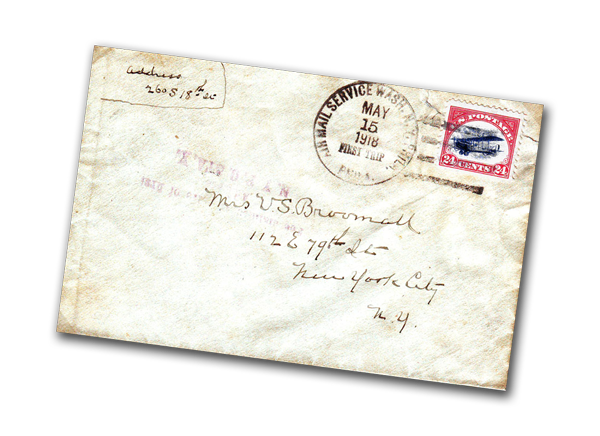 address
260 S 18th St
AIR MAIL SERVICE WASH. N.Y. PHIL.
MAY
15
1918
FIRST TRIP
PHILA.
POSTAGE
24 CENTS 24
Mrs V.S. Broomall
112 E 79th St
New York City
N.Y.